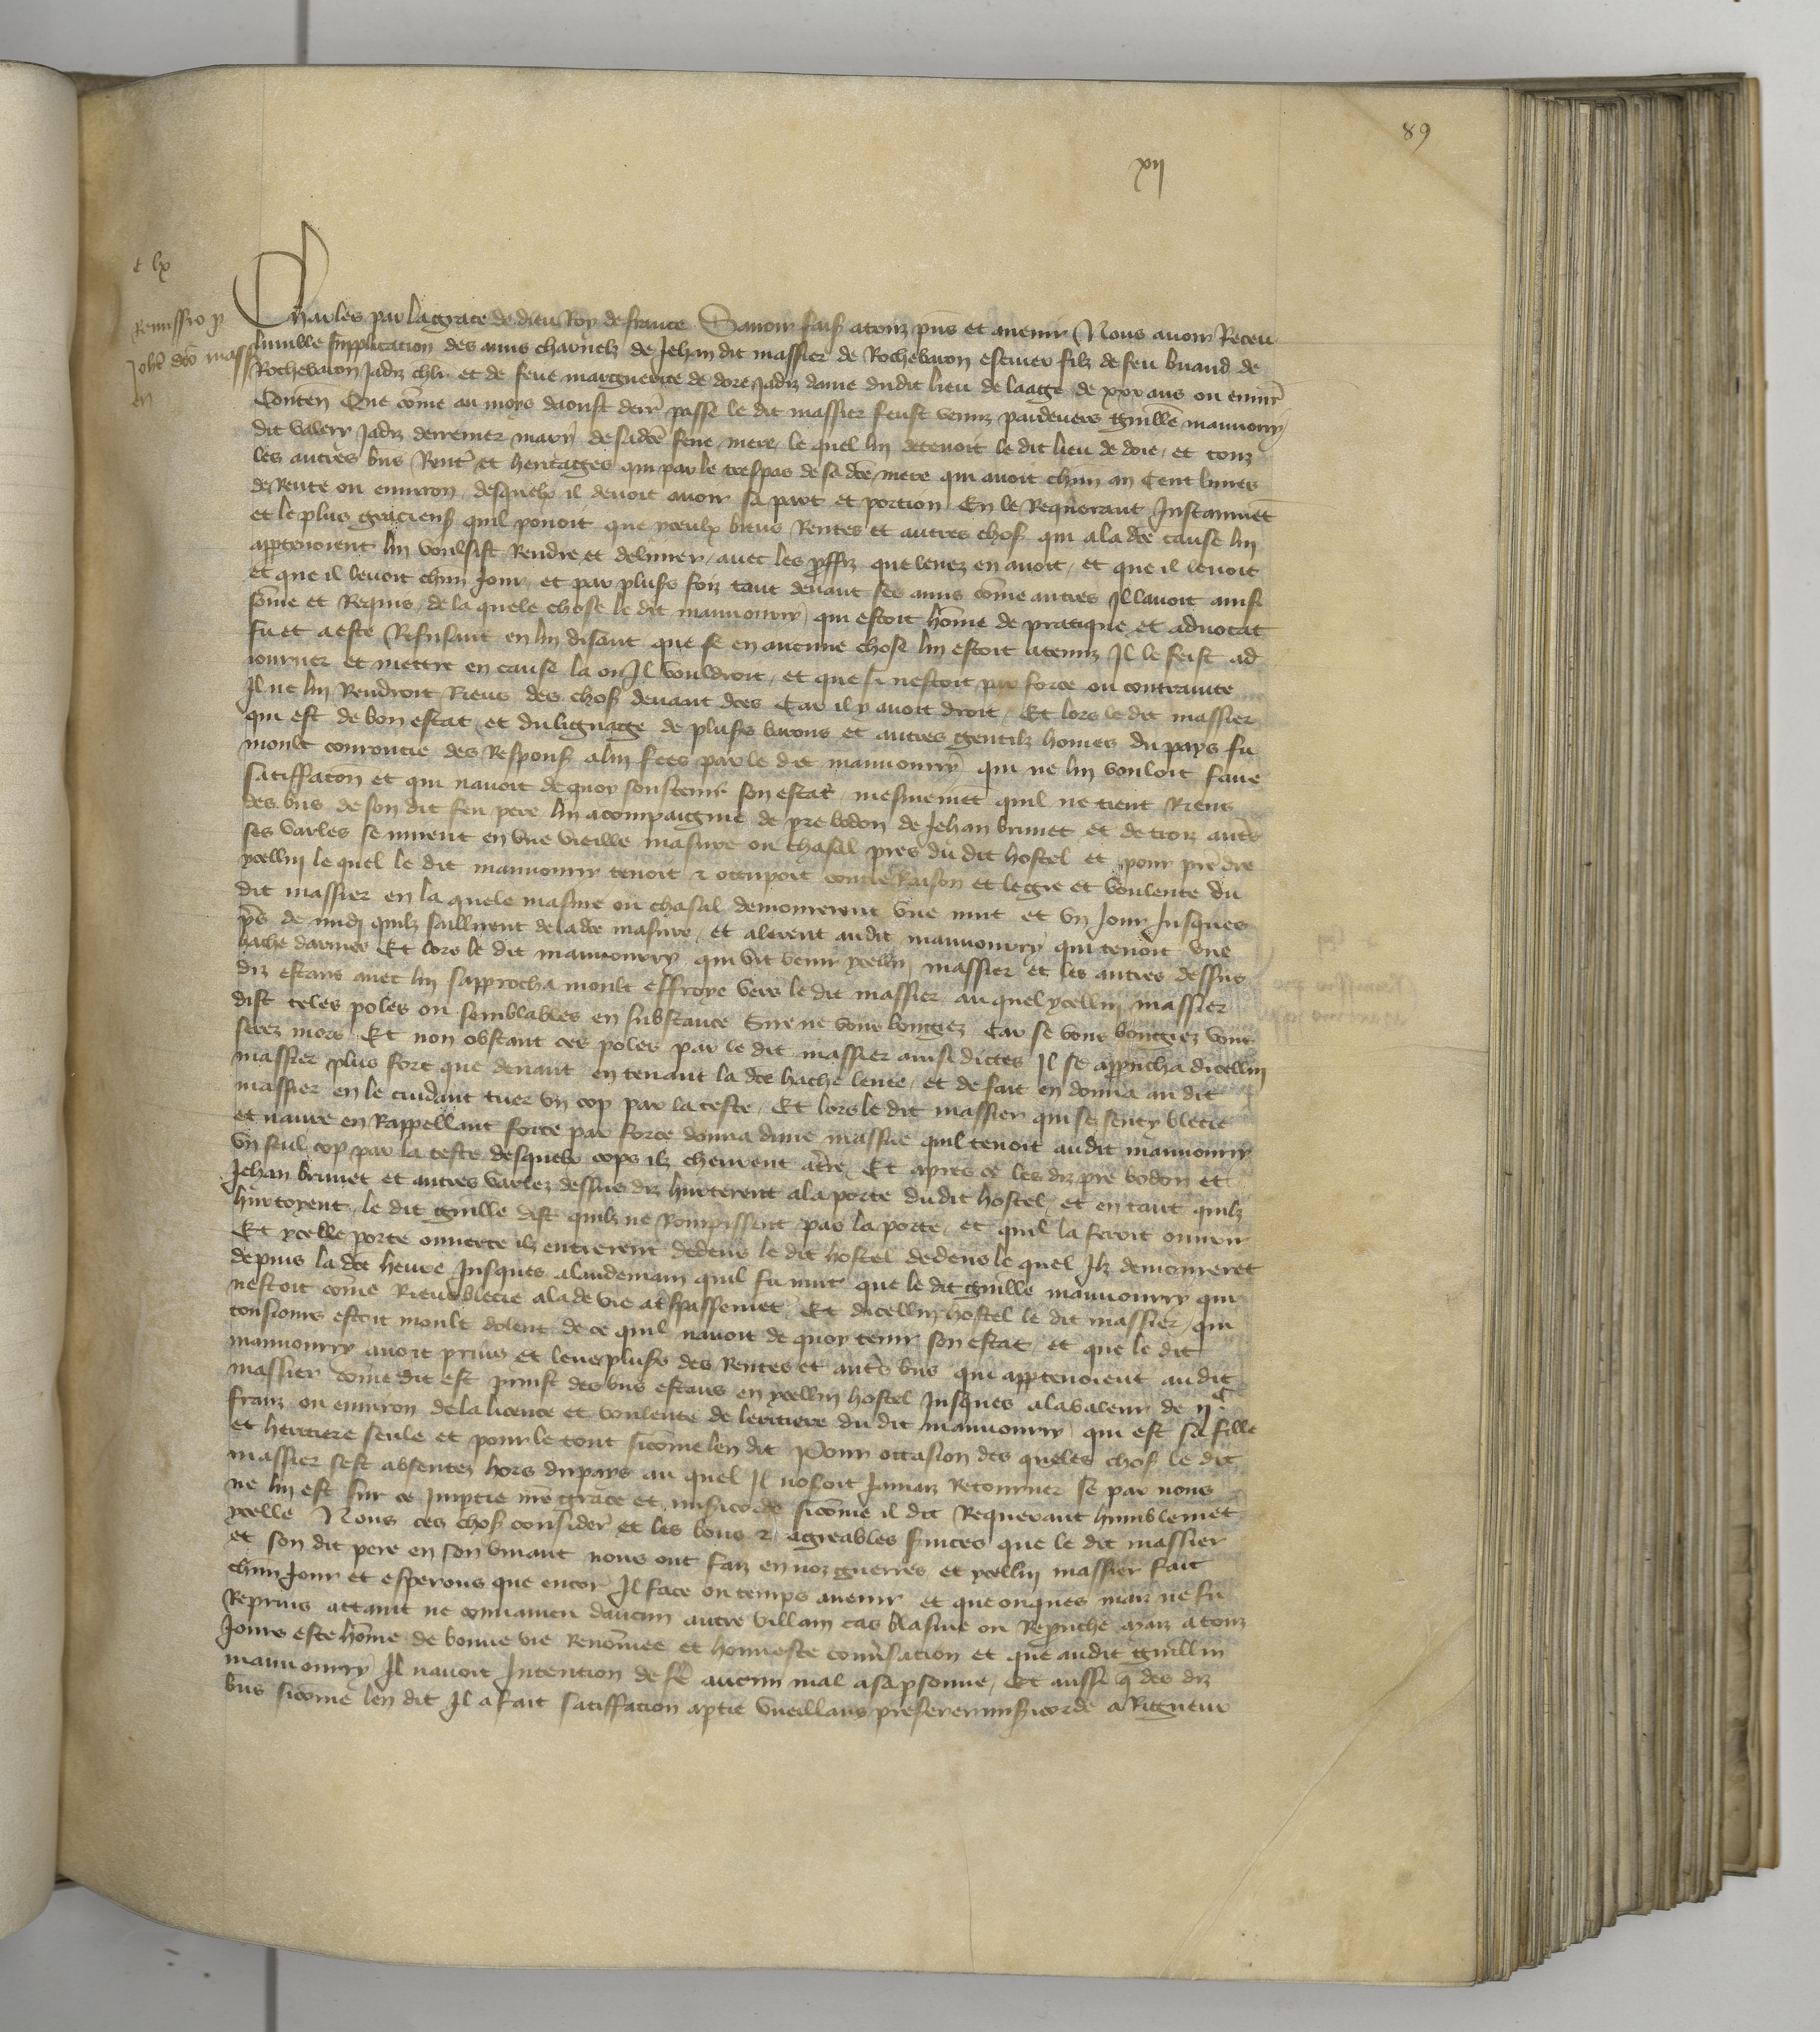 89
xij
c lx
Remissio p
Joh dco mass
en
Charles par la grace de dieu Roy de france Sauoir faisons a touz pns et auenir Nous auoir Receu
lumble supplicacion des amis charnelz de Jehan dit massier de Rochebaron escuier filz de feu briand de
Rochebaron Jadiz chlr et de feue marguerite de dore Jadiz dame dudit lieu de laage de xxv ans ou enuir
Conten Que come au moys daoust derr passe le dit massier feust venuz pardeuers guille mauuoury
dit valery Jadiz derrenier mary de sa dce feue mere le quel lui detenoit le dit lieu de dore et touz
les autres bns Rent et heritages qui par le trespas de sa dce mere qui auoit chun an Cent liures
de Rente ou enuiron desquelx il deuoit auoir sa part et portion En le Requerant Instaument
et le plus gracieus quil pouoit que yceulx biens Rentes et autres chos qui a la dce cause lui
apptenoient lui voulsist Rendre et deliurer auec les proffiz que leuez en auoit et que il leuoit
et que il leuoit chun Jour et par plusrs foiz tant deuant ses amis come autres Il lauoit ainsi
some et Requis de la quele chose le dit mauuoury qui estoit home de pratique et aduocat
fu et a este Refusant en lui disant que se en aucune chose lui estoit atenuz Il le feist ad
iourner et mettre en cause la ou Il vouldroit et que se nestoit par force ou contrainte
Il ne lui Rendroit Riens des chos deuant dces Car il y auoit droit Et lors le dit massier
qui est de bon estat et du lignage de plusrs barons et autres gentilz homes du pays fu
moult courroucie des Respons a lui fctes par le dit mauuoury qui ne lui vouloit faire
satiffacon et qui nauoit de quoy soustenir son estat mesmemet quil ne tient Riens
des bns de son dit feu pere lui acompaigne de pre bodon de Jehan brunet et de troiz autrs
ses varles se mirent en vne vieille masure ou chasal pres du dit hostel et pour predre
ycellui le quel le dit mauuoury tenoit & occupoit contre Raison et le gre et voulente du
dit massier en la quele masure ou chasal demourerent vne nuit et vn Jour Jusques
pres de midj quilz saillirent de la dce masure et alerent audit mauuoury qui tenoit vne
hache darmes Et lors le dit mauuoury qui vit venir ycellui massier et les autres dessus
diz estans auec lui sapprocha moult effroye vers le dit massier au quel ycellui massier
dist teles poles ou semblables en substance Sire ne vous bougez Car se vous bougiez vous
serez mors Et non obstant ces poles par le dit massier ainsi dictes Il se approucha dicellui
massier plus fort que deuant en tenant la dce hache leuee et de fait en donna au dit
massier en le cuidant tuer vn cop par la teste Et lors le dit massier qui se senty blecie
et naure en Rappellant force par force donna dune massue quil tenoit audit mauuoury
vn seul cop par la teste desquelx cops ilz cheurent a tre Et apres ce les diz pre bodon et
Jehan brunet et autres varlez dessus diz hurterent a la porte du dit hostel et en tant quilz
hurtoyent le dit guille dist quilz ne Rompissent pas la porte et quil la feroit ouurir
Et ycelle porte ouuerte ilz entrerent dedens le dit hostel dedens le quel Ilz demoureret
depuis la dce heure Jusques a landemain quil fu nuit que le dit guille mauuoury qui
nestoit come Riens blecie ala de vie a trspassemet Et dicellui hostel le dit massier qui
tousiours estoit moult dolent de ce quil nauoit de quoy tenir son estat et que le dit
mauuoury auoit prins et leue plusrs des Rentes et autrs bns qui apptenoient au dit
massier come dit est prinst des bns estans en ycellui hostel Jusques a la valeur de ijc
frans ou enuiron de la licence et voulente de leritiere du dit mauuoury qui est sa fille
et heritiere seule et pour le tout sicome len dit Pour occasion des queles chos le dit
massier sest absentez hors du pays au quel Il noseroit Jamaiz Retourner se par nous
ne lui est sur ce Jmptie nre grace et misicorde sicome il dit Requerant humblemet
ycelle Nous ces chos considere et les bons & agreables seruices que le dit massier
et son dit pere en son viuant nous ont faiz en noz guerres et ycellui massier fait
chun Jour et esperons que encor Il face ou temps auenir et que onques maiz ne fu
Reprins attaint ne conuaincu daucun autre villain cas blasme ou Reprouche maiz a touz
Jours este home de bonne vie Renomee et honneste conuersacion et que audit guillm
mauuoury Il nauoit Intention de fe aucun mal a sa psonne Et aussi q des diz
bns sicome len dit Il a fait satiffacion a ptie vueillans preferer misicorde a Rigueur